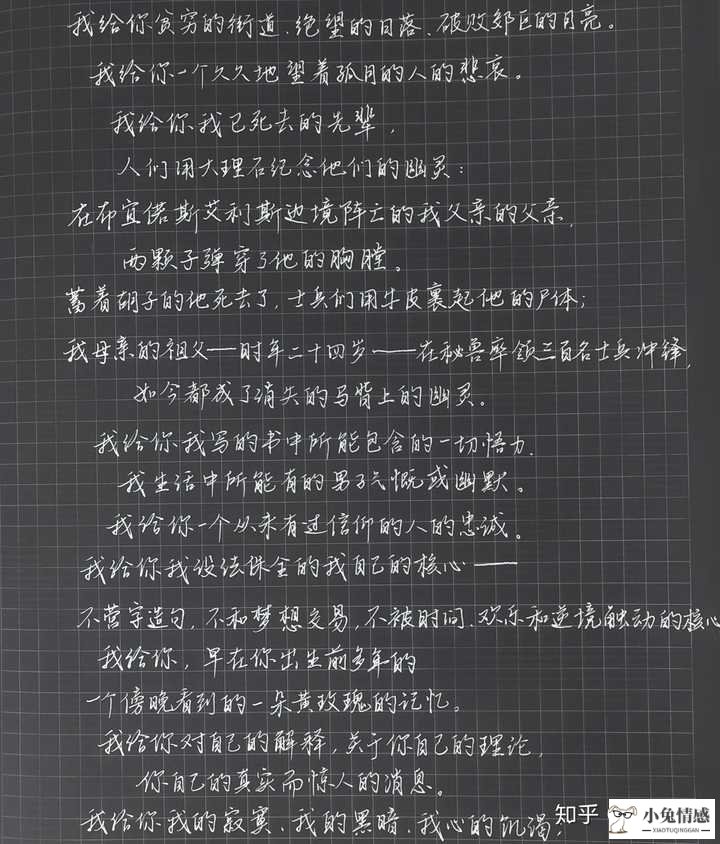 我给你贫穷的街道、绝望的日落、破败郊区的月亮。
我给你一个久久地望着孤月的人的悲哀。
我给你我已死去的先辈，
人们用大理石纪念他们的幽灵：
在布宜偌斯艾利斯边境阵亡的我父亲的父亲，
两颗子弹穿了他的胸膛。
蓄着胡子的他死去了，士兵们用牛皮裹起他的尸体；
我母亲的祖父——时年二十四岁——在秘鲁率领三百名士兵冲锋，
如今都成了消失的马背上的幽灵。
我给你我写的书中所能包含的一切悟力、
我生活中所能有的男子气慨或幽默。
我给你一个从未有过信仰的人的忠诚。
我给你我设法保全的我自己的核心——
不营字造句，不和梦想交易，不被时间、欢乐和逆境触动的核心
我给你，早在你出生前多年的
一个傍晚看到的一朵黄玫瑰的记忆。
我给你对自己的解释，关于你自己的理论，
你自己的真实而惊人的消息。
我给你我的寂寞、我的黑暗、我心的饥渴；
知乎
小兔情感
XIAOTUQINGGAN